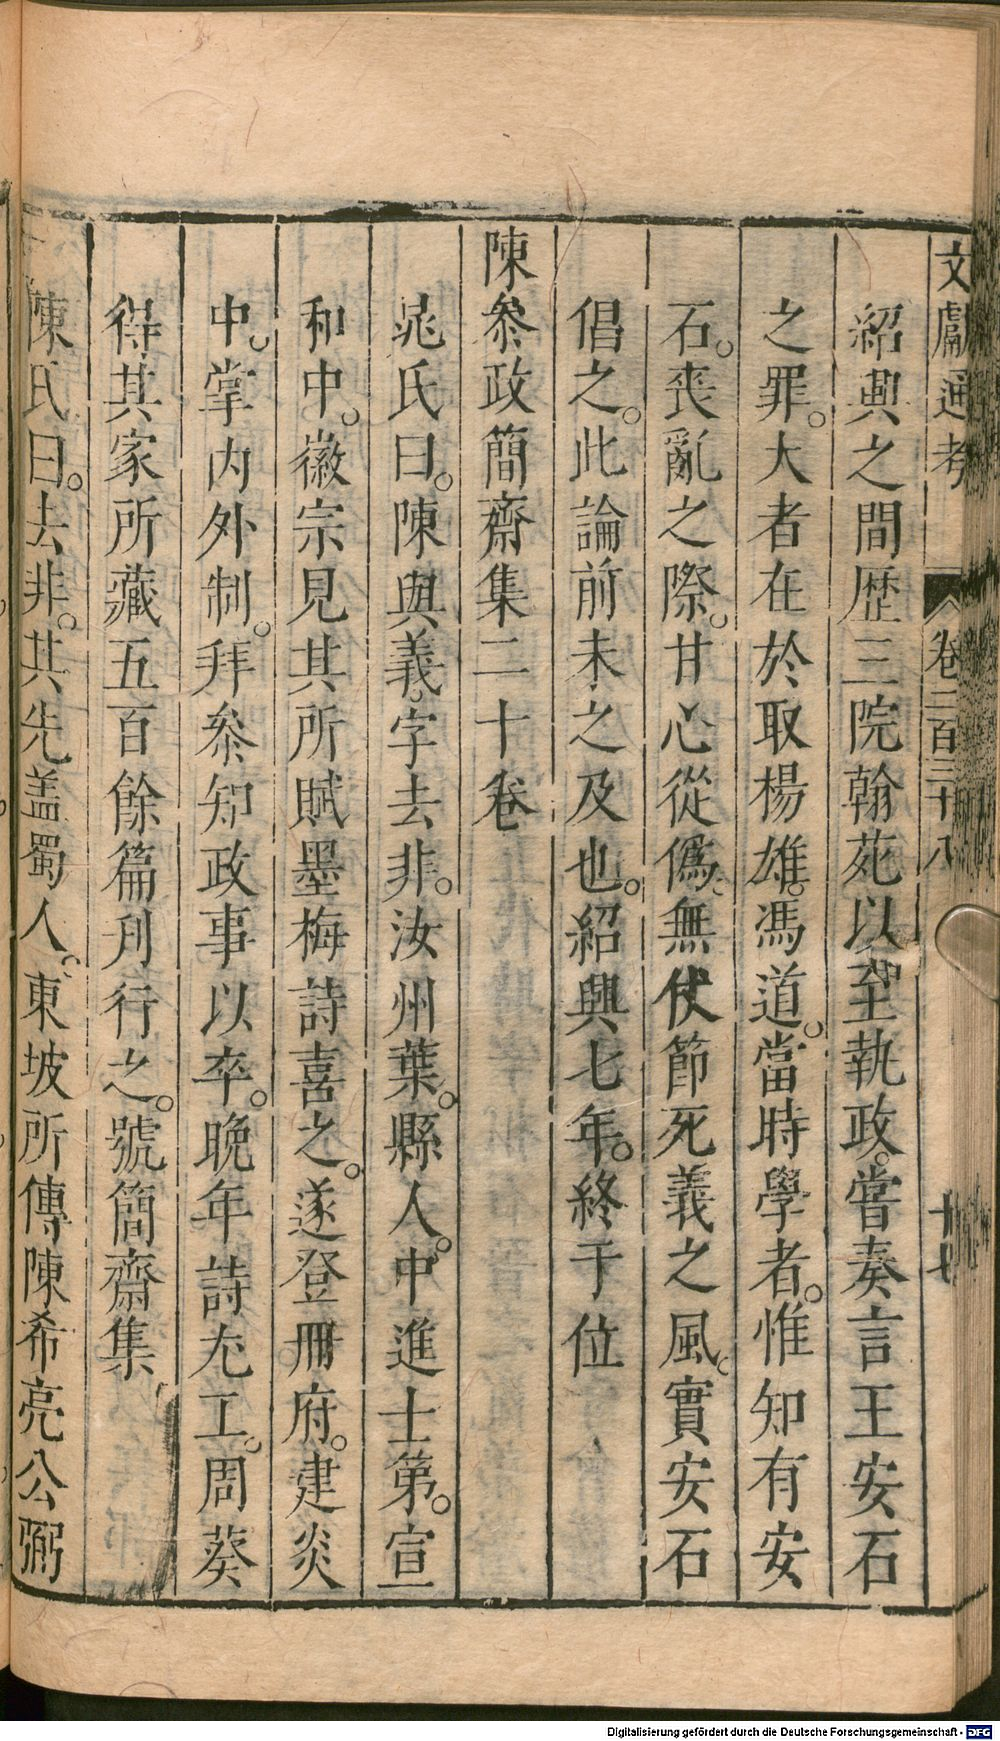 文獻通考 卷二百三十八 十七
紹興之間歷三院翰苑以至執政。嘗奏言王安石
之罪。大者在於取楊雄。馮道。當時學者。惟知有安
石。喪亂之際。甘心從僞。無伏節死義之風。實安石
倡之。此論前未之及也。紹興七年。終于位
陳叅政簡齋集二十卷
晁氏曰。陳與義。字去非。汝州葉。縣人。中進士第。宣
和中。徽宗見其所賦墨梅詩喜之。遂登冊府。建炎
中。掌内外制。拜叅知政事以卒。晚年詩尤工。周葵
得其家所藏五百餘篇刋行之。號簡齋集
陳氏曰。去非。其先盖蜀人。東坡所傳陳希亮公弼
Digitalisierung gefördert durch die Deutsche Forschungsgemeinschaft - DFG